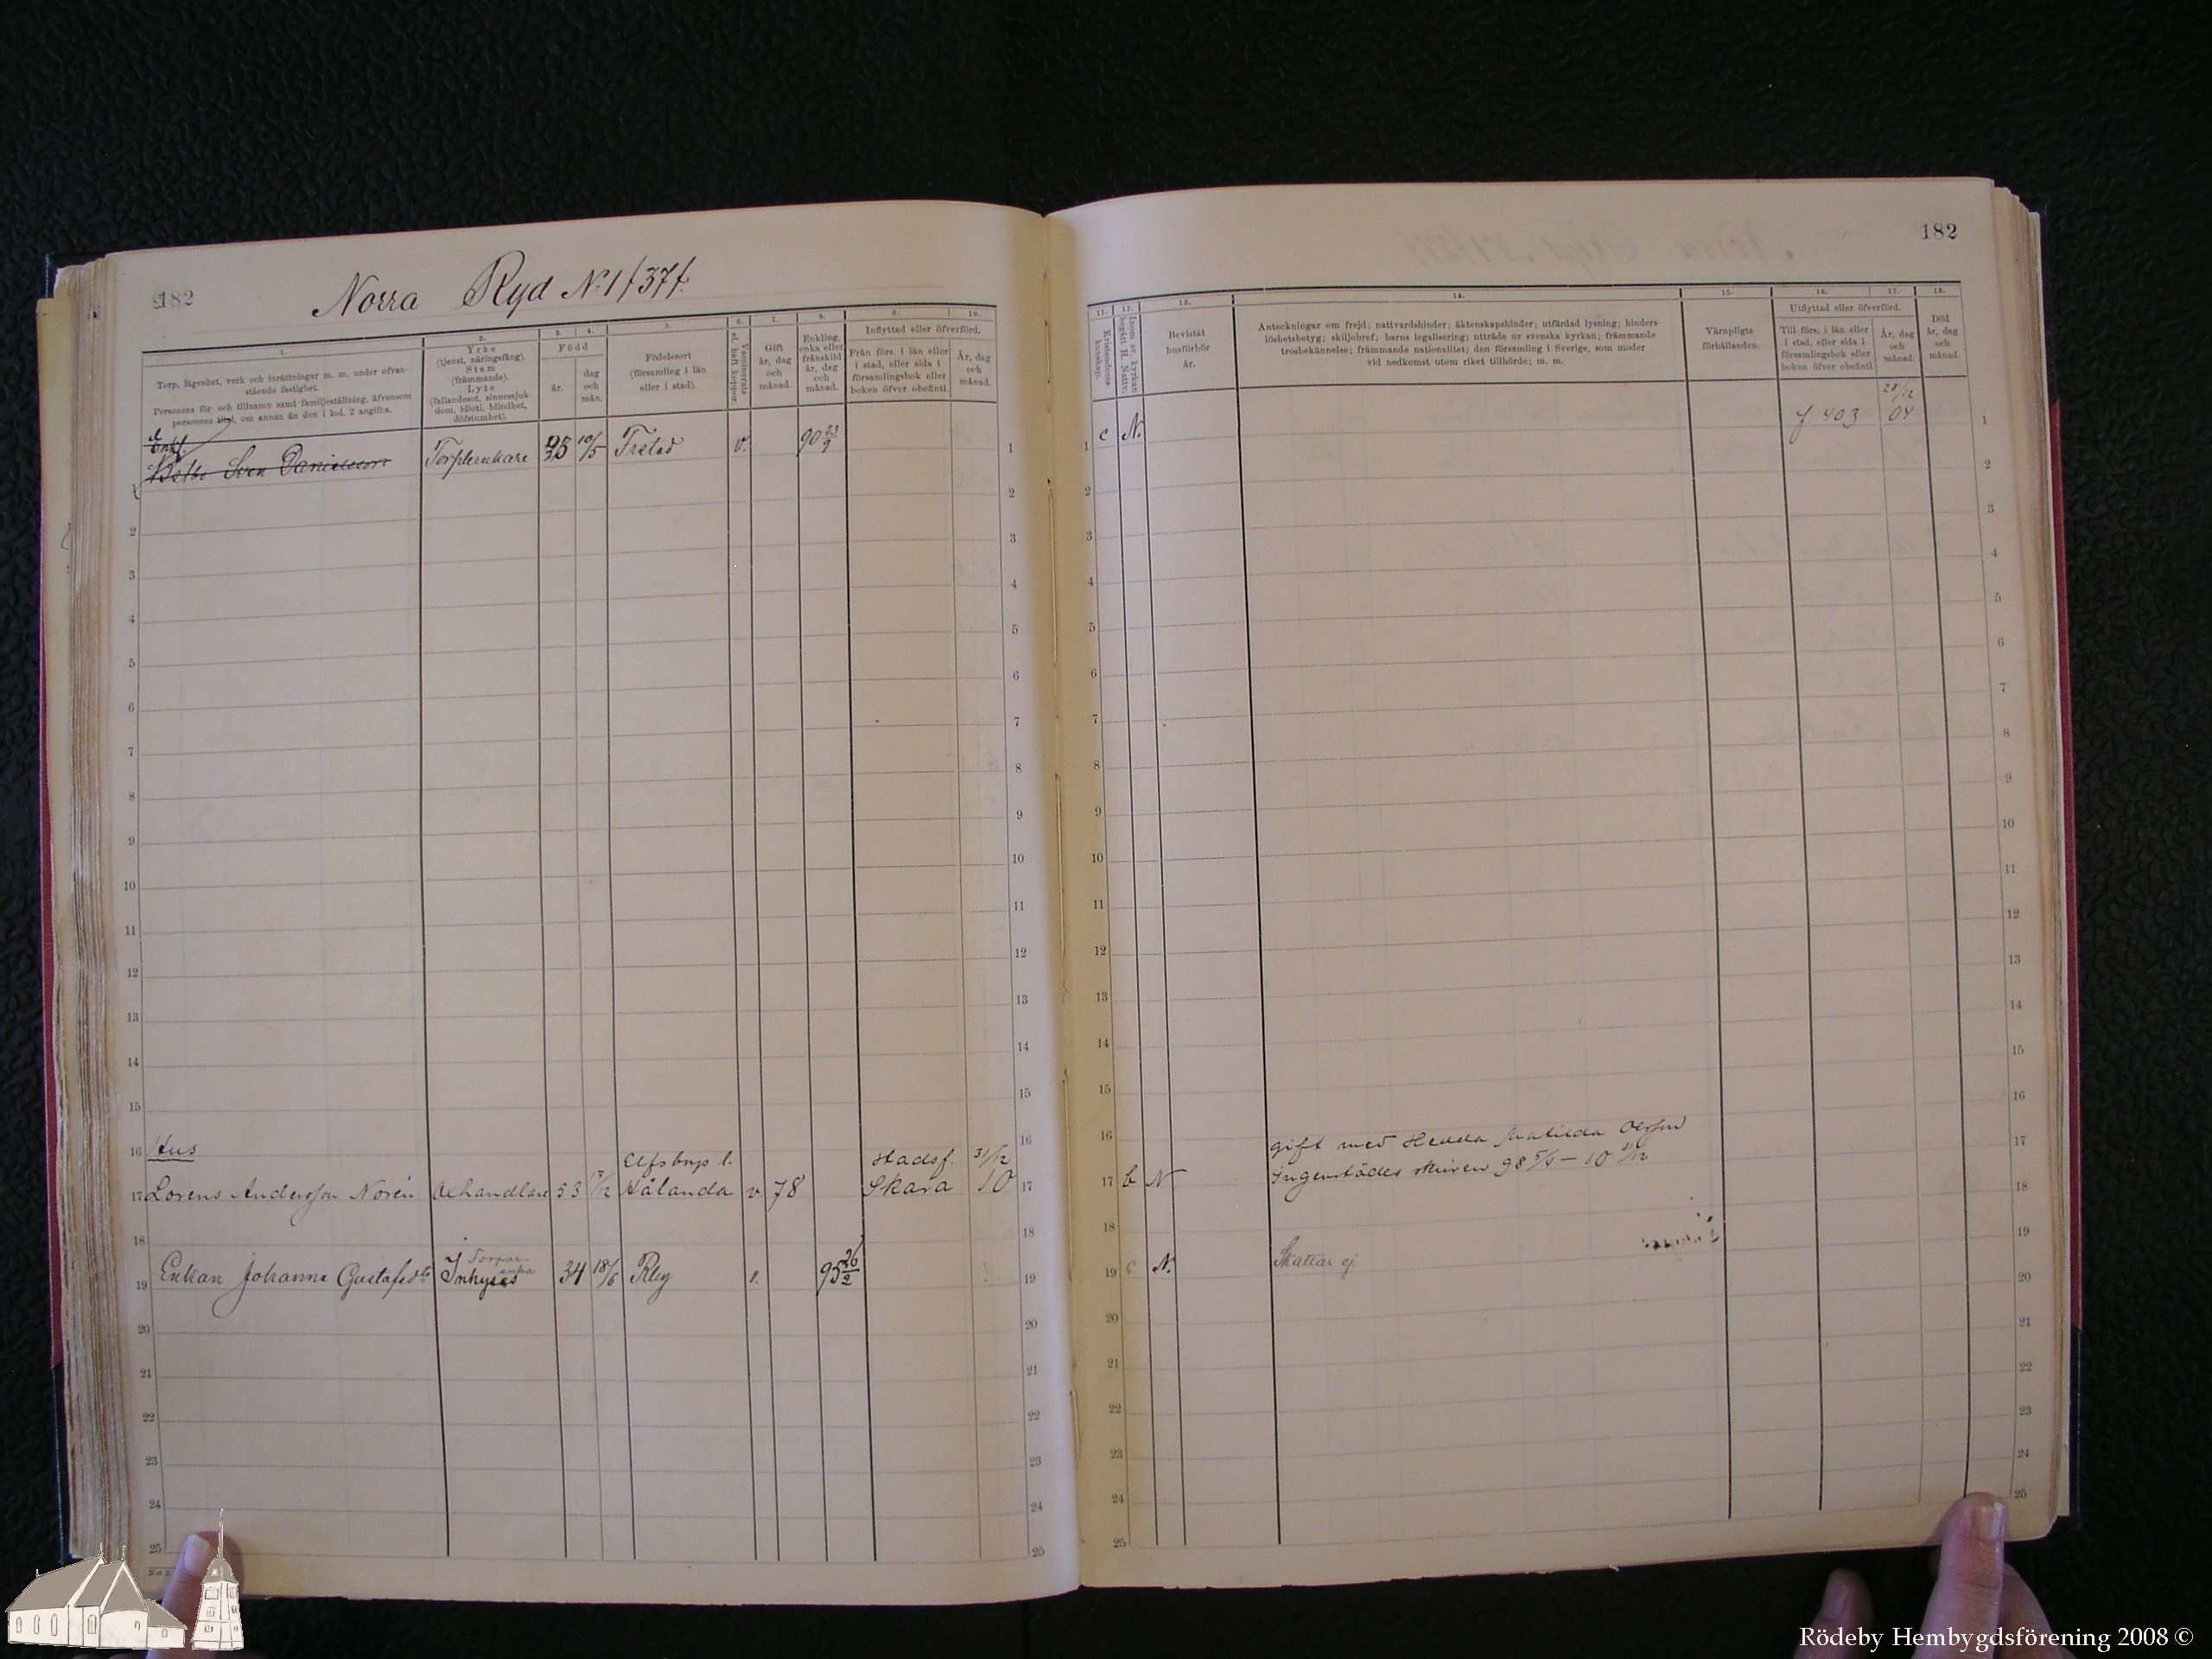 182
Norra Ryd No 1 f 37 f.
1.
2.
3.
4.
5.
6.
7.
8.
9.
10.
Torp, lägenhet, verk och inrättningar m. m. under ofvan
stående fastighet.
Personens för- och tillnamn samt familjeställning, äfvensom
personens titel, om annan än den i kol. 2 angifna.
Yrke
(tjenst, näringsfång).
Stam
(främmande).
Lyte
(fallandesot, sinnessjuk-
dom, idioti, blindhet,
döfstumhet).
Född
år.
dag
och
mån.
Födelseort
(församling i län
eller i stad).
Vaccinerats
el. haft koppor.
Gift
år, dag
och
månad.
Enkling,
enka eller
frånskild
år, dag
och
månad.
Inflyttad eller öfverförd.
Från förs. i län eller
i stad, eller sida i
församlingsbok eller
boken öfver obefintl.
År, dag
och
månad.
Enkl.
Sven Danielsson Torpbrukare 10/5 v. 90 23/9
16 Hus Elfsborgs l. Stadsf. 31/12
17 Lorens Andersson Norén 53 Hålanda v 78 Skara 10
Torpar-
enka
19 Enkan Johanna Gustafsdr Inhyses 34 18/6 v. 95 26/2
182
11.
12.
13.
14.
15.
16.
17.
18.
Kristendoms-
kunskap.
Inom sv. kyrkan
begått H. Nattv.
Bevistat
husförhör
år.
Anteckningar om frejd; nattvardshinder; äktenskapshinder; utfärdad lysning; hinders-
löshetsbetyg; skiljobref; barns legalisering; utträde ur svenska kyrkan; främmande
trosbekännelse; främmande nationalitet; den församling i Sverige, som moder
vid nedkomst utom riket tillhörde; m. m.
Värnpligts-
förhållanden.
Utflyttad eller öfverförd.
Till förs. i län eller
i stad, eller sida i
församlingsbok eller
boken öfver obefintl.
År, dag
och
månad.
Död
år, dag
och
månad.
1 c N. f. 403 28/12 04
gift med Hedda Matilda Olsson
17 b N Ingenstädes skriven 98 5/4 – 10 31/12
19 c N. Skattar ej.
Rödeby Hembygdsförening 2008 ©